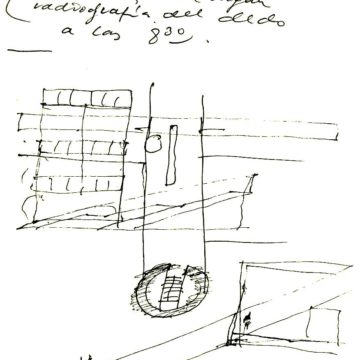 radiografía del dedo
a las 8³⁰.